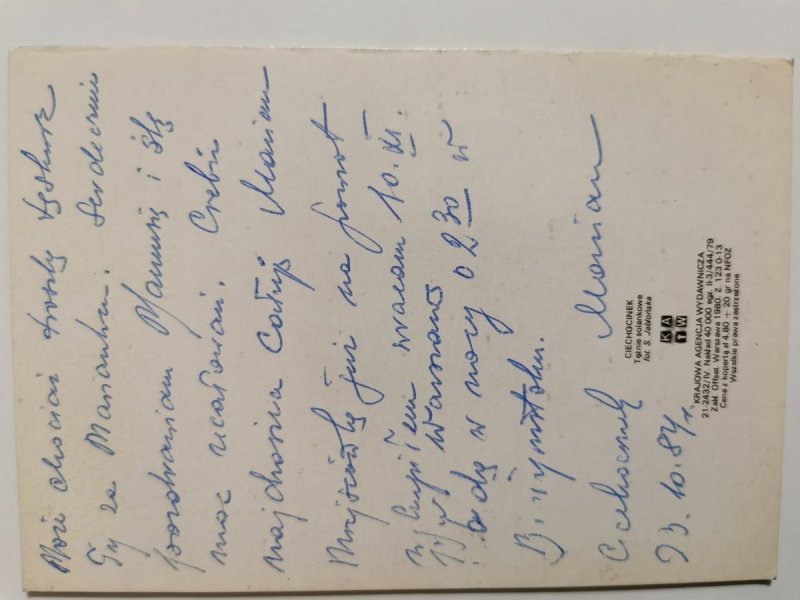 Może chociaż trochę tęsknisz
Ty za Marianken. Serdecznie
pozdrawiam Mamusię i ślę
moc ucałowań. Ciebie
najdroższa całuję Marian
Miejscówkę już na powrót
wykupiłem wracam 10.XI.
Warszawa
będę w nocy o 2 30 w
Białymstoku.
Ciechocinek Marian
25.10.84 r.
CIECHOCINEK
Tężnie solankowe
fot. S. Jabłońska
KAW
KRAJOWA AGENCJA WYDAWNICZA
21-2432/IV. Nakład 40 000 egz. II-3/444/79
Zakł. Offset. Warszawa 1980. Z. 123 0-13
Cena z kopertą zł 4.80 + 20 gr na NFOZ
Wszelkie prawa zastrzeżone